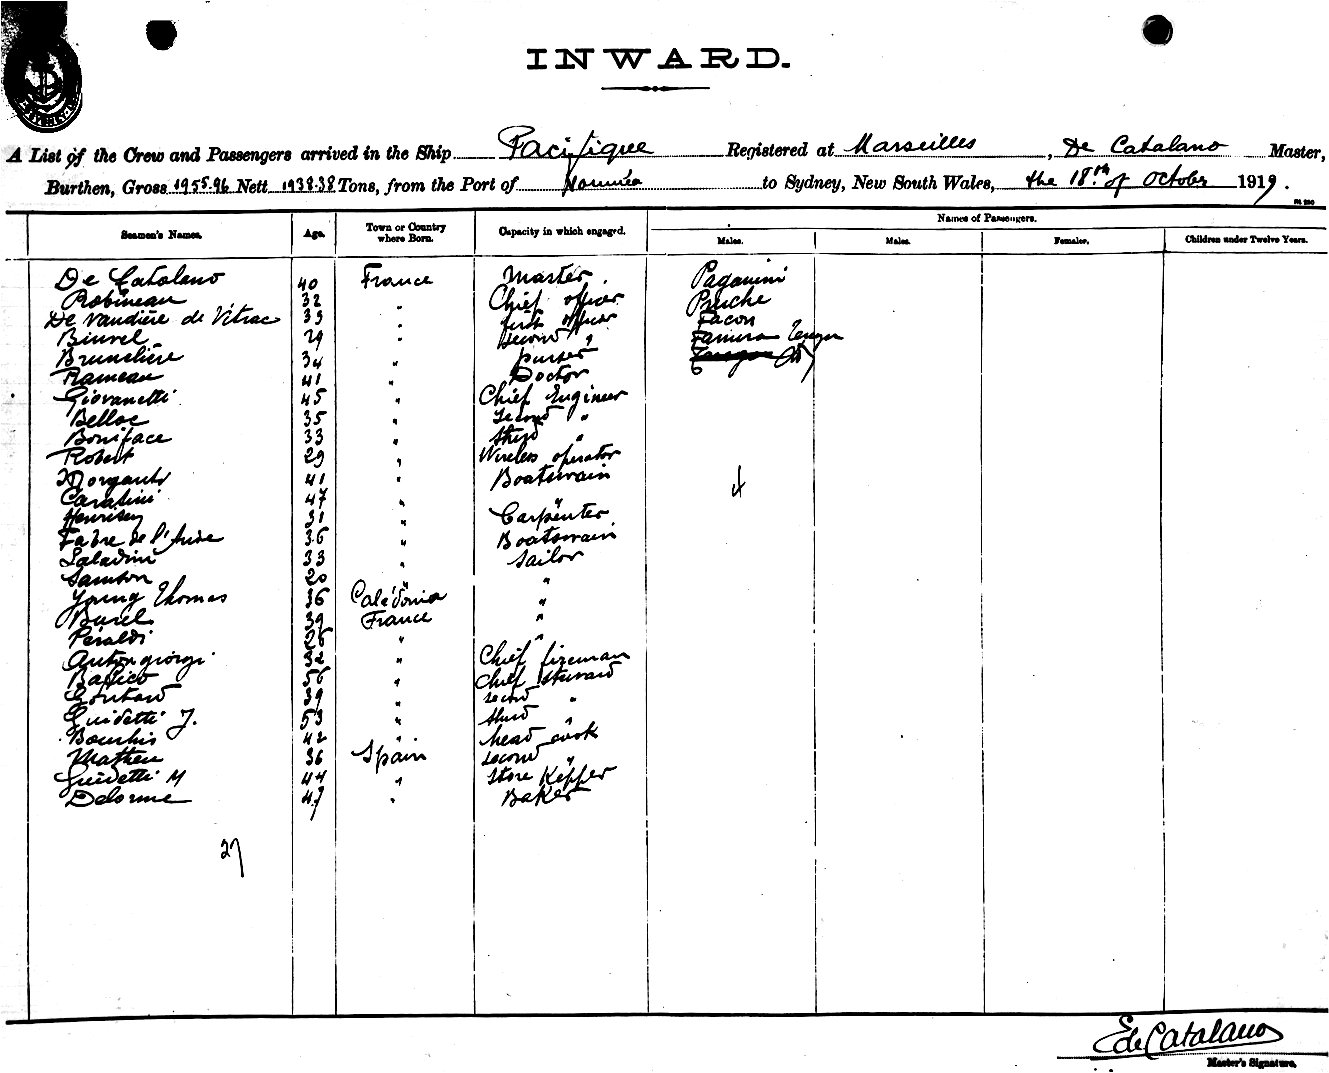 INWARD.
A List of the Crew and Passengers arrived in the Ship Pacifique Registered at Marseilles, De Catalano Master,
Burthen, Gross 1955.96 Nett 1938.38 Tons, from the Port of Nouméa to Sydney, New South Wales, the 18th of October 1919.
Names of Passengers.
Seamen's Names. Age. Town or Country where Born. Capacity in which engaged. Males. Males. Females. Children under Twelve Years.
De Catalano 40 France Master Paganini
Robineau 32 " Chief officer Puiche
De Vaudière de Vitrac 33 " first officer Facon
Binvel 29 " second "
Brunelière 34 " purser
Rameau 41 " Doctor
Giovanetti 45 " Chief Engineer
Belloc 35 " second "
Boniface 33 " third "
Robert 29 " Wireless operator
Morganti 41 " Boatswain
Caratini 47 " "
Henrisey 31 " Carpenter
Fabre de l'Aude 36 " Boatswain
Saladini 33 " Sailor
Samson 20 " "
Young Thomas 36 Calédonia "
Burel 39 France "
Péraldi 26 " "
Antongiorgi 32 " Chief fireman
Bafico 56 " Chief steward
39 " second "
Guidetti J. 53 " third "
Bourhis 42 " head cook
Matheu 36 Spain second "
Guidetti M 44 " Store Kepper
Delorme 47 " Baker
4
27
E de Catalano
Master's Signature.
SYDNEY